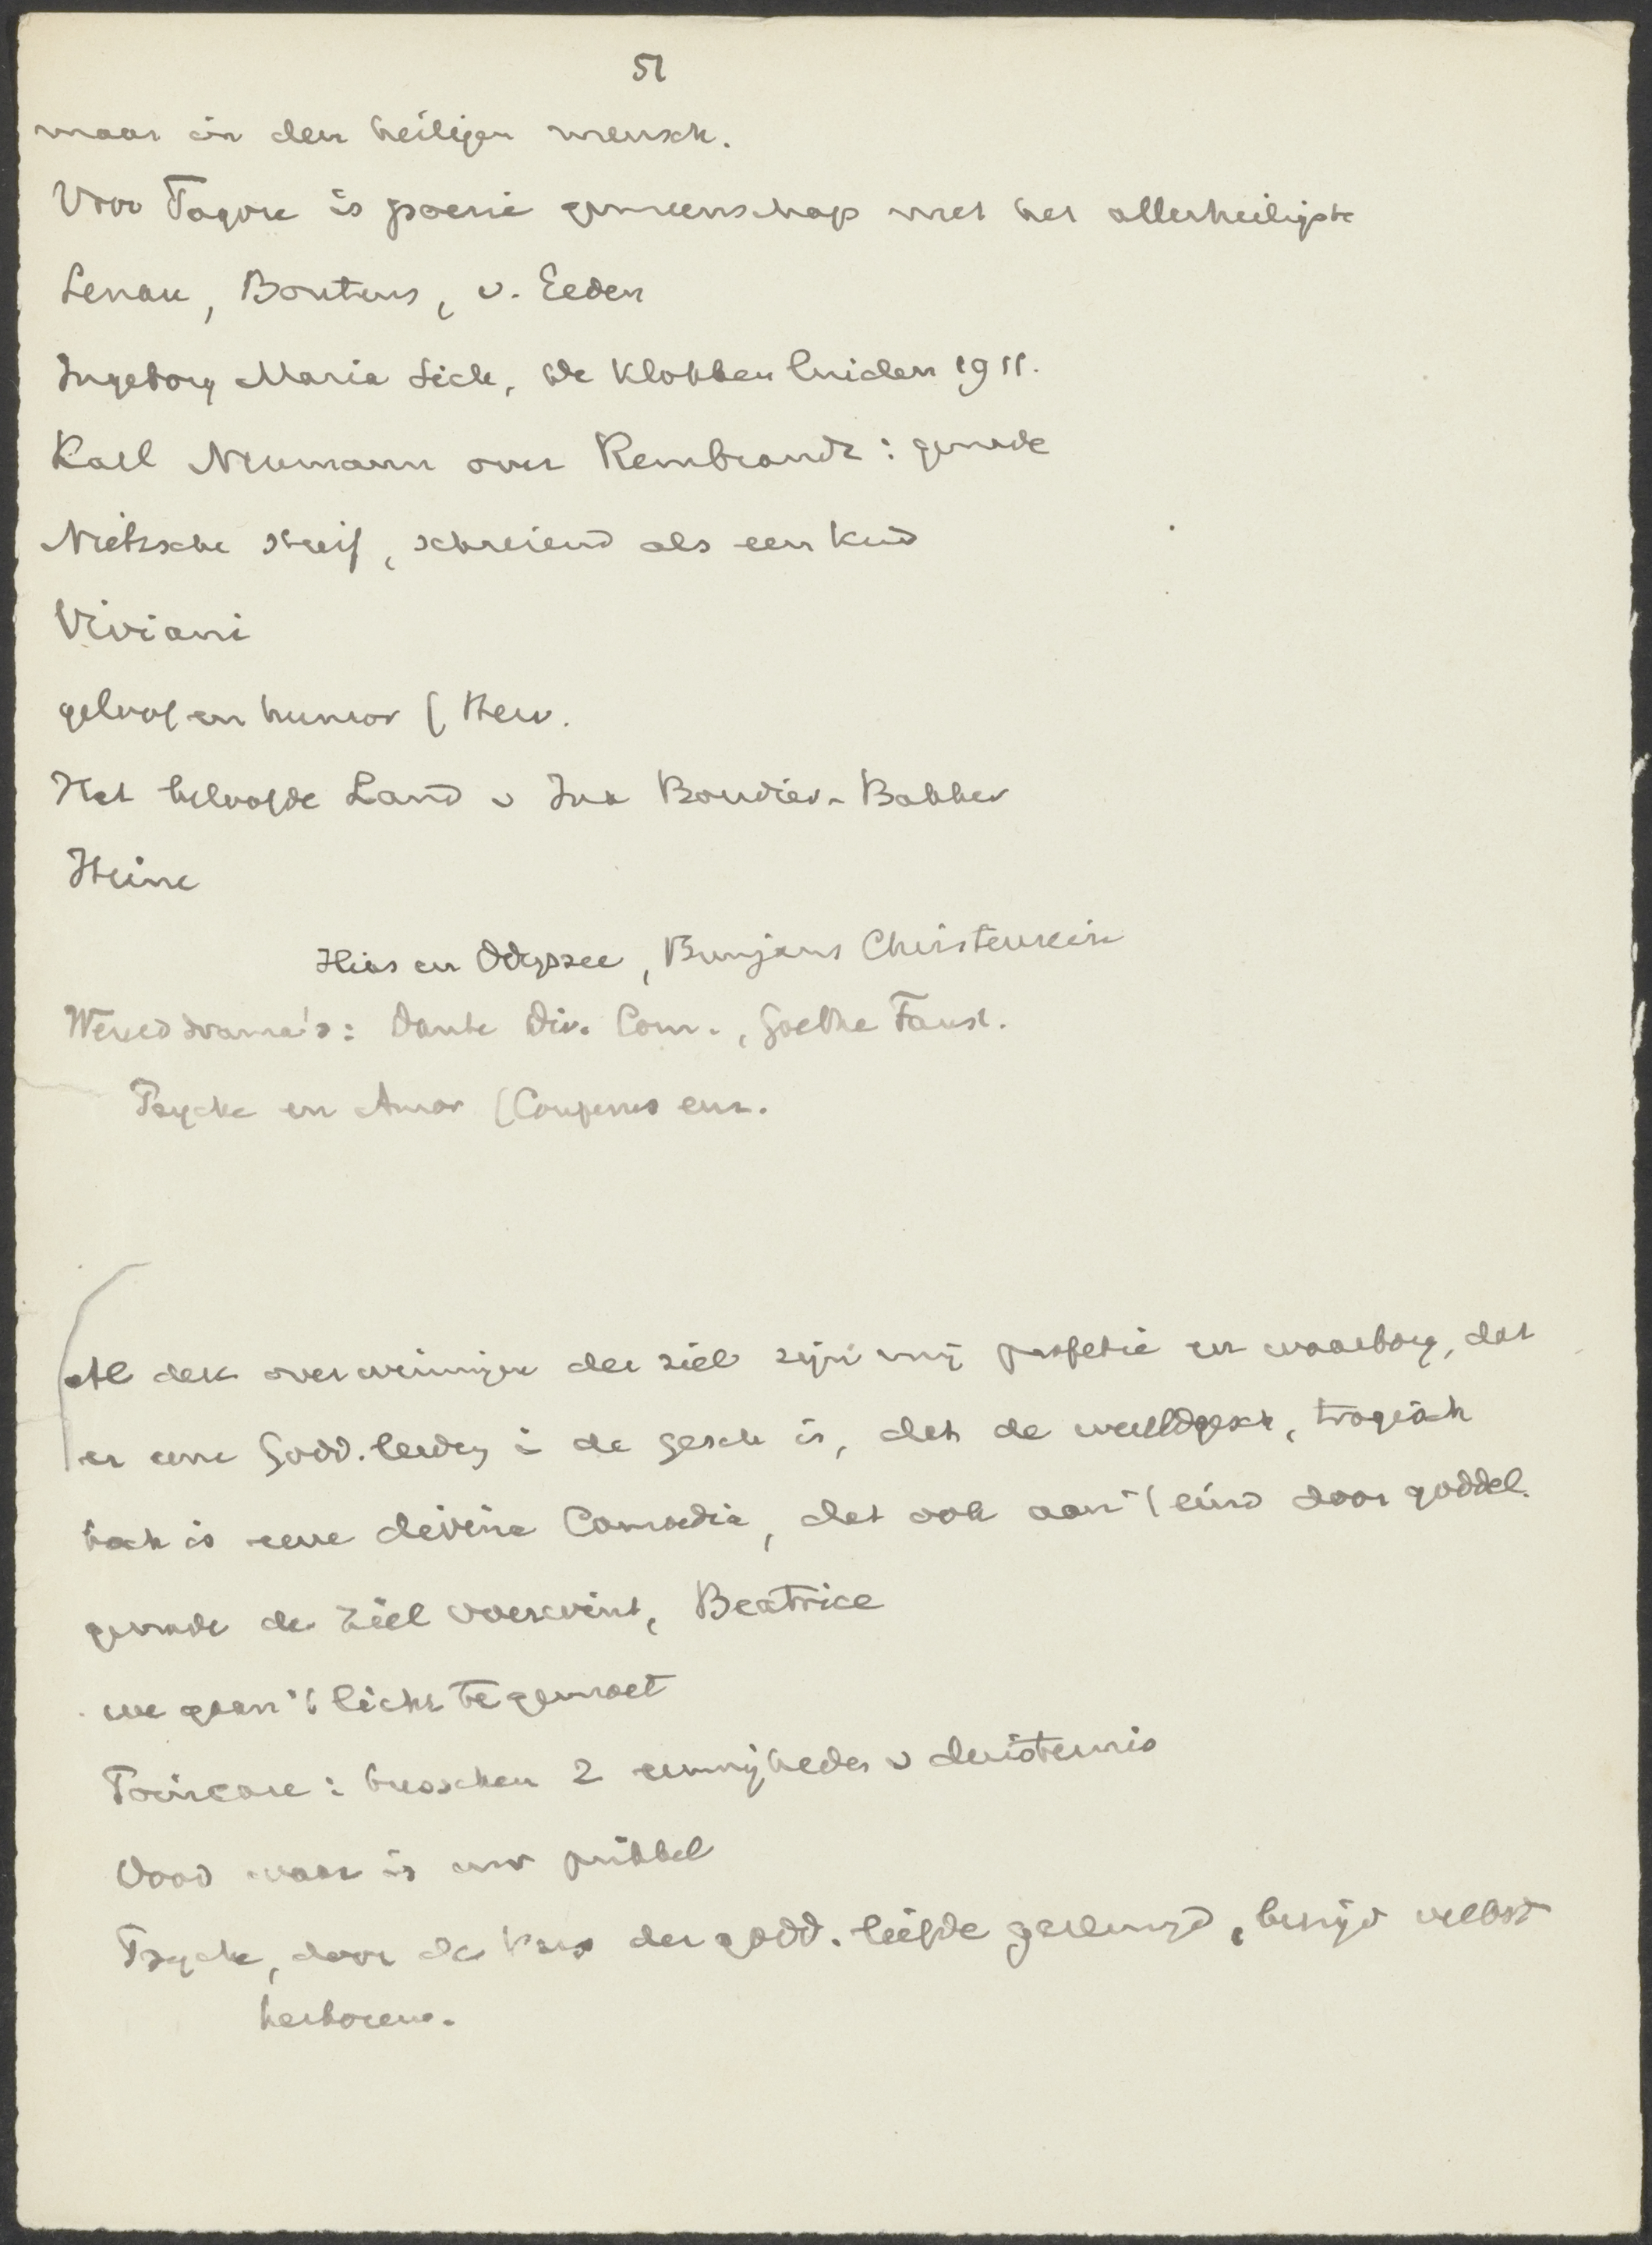 51
maar in den heiligen mensch.
Voor Tagore is poezie gemeenschap met het allerheiligste
Lenau, Boutens, v. Eeden
Ingeborg Maria Sick, de Klokken luiden 1911.
Karl Neumann over Rembrandt: genade
Nietzsche stierf, schreiend als een kind
Viviani
geloof en humor (Kierk.
Het beloofde Land v Ina Boudier-Bakker
Heine
Ilias en Odyssee, Bunjans Christenreis
Wereld drama's: Dante Div. Com., Goethe Faust.
Psyche en Amor (Couperus enz.
Al deze overwinningen der ziel zijn mij profetie en waarborg, dat
er eene Godd. leiding i de gesch is, dat de wereldgesch, tragisch
toch is eene divina Comoedia, dat ook aan 't eind door goddel.
genade de Ziel overwint, Beatrice
we gaan 't licht tegemoet
Poincare: tusschen 2 eeuwigheden v duisternis
Dood waar is uw prikkel
Psyche, door de kus der godd. liefde gereinigd, herboren.